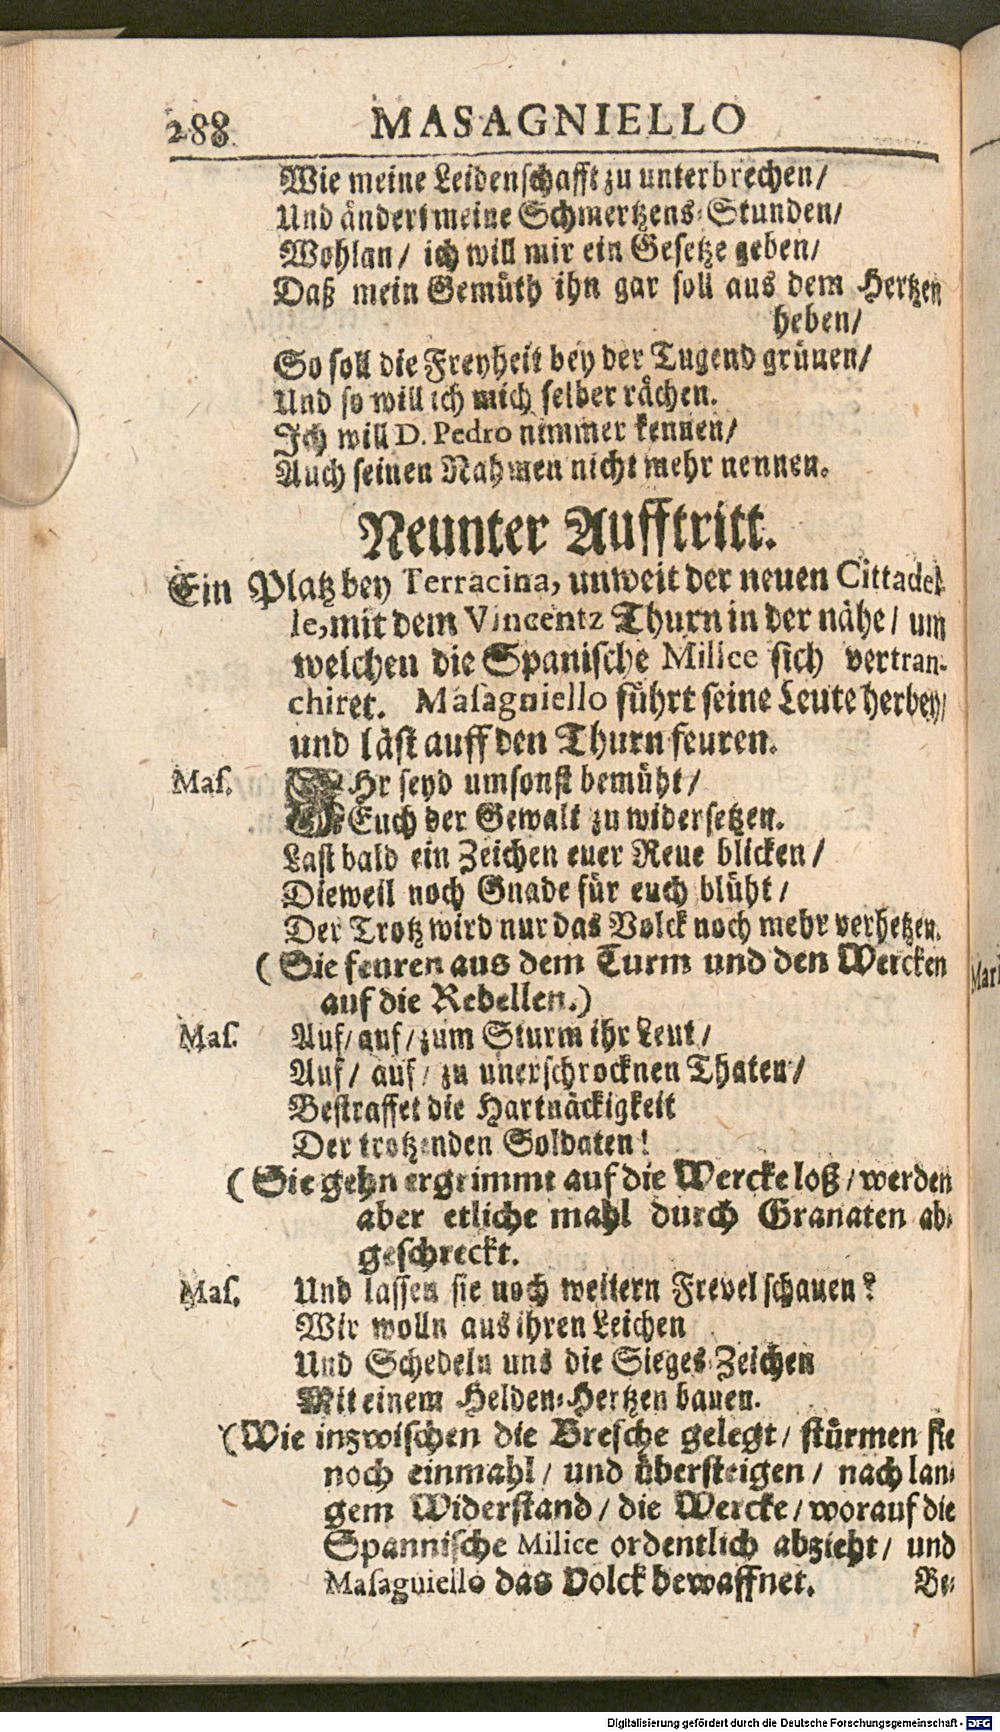 288 MASAGNIELLO
Wie meine Leidenschafft zu unterbrechen/
Und ändert meine Schmertzens-Stunden/
Wohlan/ ich will mir ein Gesetze geben/
Daß mein Gemüth ihn gar soll aus dem Hertzen
heben/
So soll die Freyheit bey der Tugend grünen/
Und so will ich mich selber rächen.
Ich will D. Pedro nimmer kennen/
Auch seinen Nahmen nicht mehr nennen.
Neunter Aufftritt.
Ein Platz bey Terracina, unweit der neuen Cittadel-
le, mit dem Vincentz Thurn in der nähe/ um
welchen die Spanische Milice sich vertran-
chiret. Masagniello führt seine Leute herbey/
und läst auff den Thurn feuren.
Mas. IHr seyd umsonst bemüht/
Euch der Gewalt zu widersetzen.
Last bald ein Zeichen euer Reue blicken/
Dieweil noch Gnade für euch blüht/
Der Trotz wird nur das Volck noch mehr verhetzen.
(Sie feuren aus dem Turm und den Wercken
auf die Rebellen.)
Mas. Auf/ auf/ zum Sturm ihr Leut/
Auf/ auf/ zu unerschrocknen Thaten/
Bestraffet die Hartnäckigkeit
Der trotzenden Soldaten!
(Sie gehn ergrimmt auf die Wercke loß/ werden
aber etliche mahl durch Granaten ab-
geschreckt.
Mas. Und lassen sie noch weitern Frevel schauen?
Wir wolln aus ihren Leichen
Und Schedeln uns die Sieges-Zeichen
Mit einem Helden-Hertzen bauen.
(Wie inzwischen die Bresche gelegt/ stürmen sie
noch einmahl/ und übersteigen/ nach lan-
gem Widerstand/ die Wercke/ worauf die
Spannische Milice ordentlich abzieht/ und
Masagniello das Volck bewaffnet. Be-
Mar
Digitalisierung gefördert durch die Deutsche Forschungsgemeinschaft - DFG